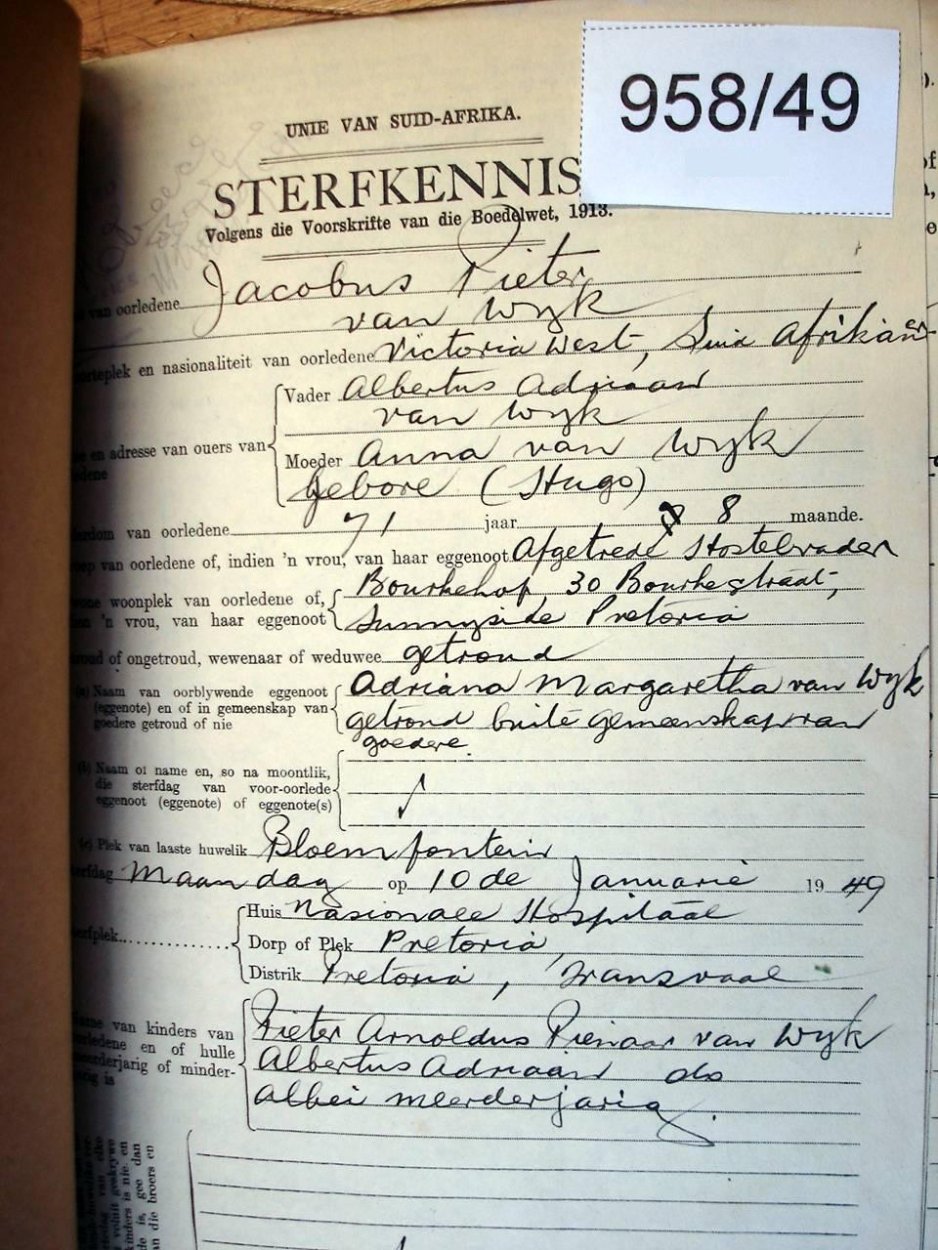 958/49
UNIE VAN SUID-AFRIKA.
STERFKENNIS
Volgens die Voorskrifte van die Boedelwet, 1913.
van oorledene Jacobus Pieter
van Wyk
en nasionaliteit van oorledene Victoria West, Suid Afrikaner
Vader Albertus Adriaan
van Wyk
en adresse van ouers van
Moeder Anna van Wyk
gebore (Hugo)
van oorledene 71 jaar 8 maande.
van oorledene of, indien 'n vrou, van haar eggenoot Afgetrede Hostelvader
woonplek van oorledene of, Bourkehof, 30 Bourkestraat,
'n vrou, van haar eggenoot Sunnyside Pretoria
of ongetroud, wewenaar of weduwee getroud
(a) Naam van oorblywende eggenoot Adriana Margaretha van Wyk
(eggenote) en of in gemeenskap van
goedere getroud of nie getroud buite gemeenskap van
goedere
(b) Naam of name en, so na moontlik,
die sterfdag van voor-oorlede
eggenoot (eggenote) of eggenote(s)
(c) Plek van laaste huwelik Bloemfontein
Maandag op 10de Januarie 19 49
Huis Nasionale Hospitaal
Dorp of Plek Pretoria,
Distrik Pretoria, Transvaal
van kinders van Pieter Arnoldus Pienaar van Wyk
en of hulle
of minder- Albertus Adriaan do
is Albei meerderjarig.